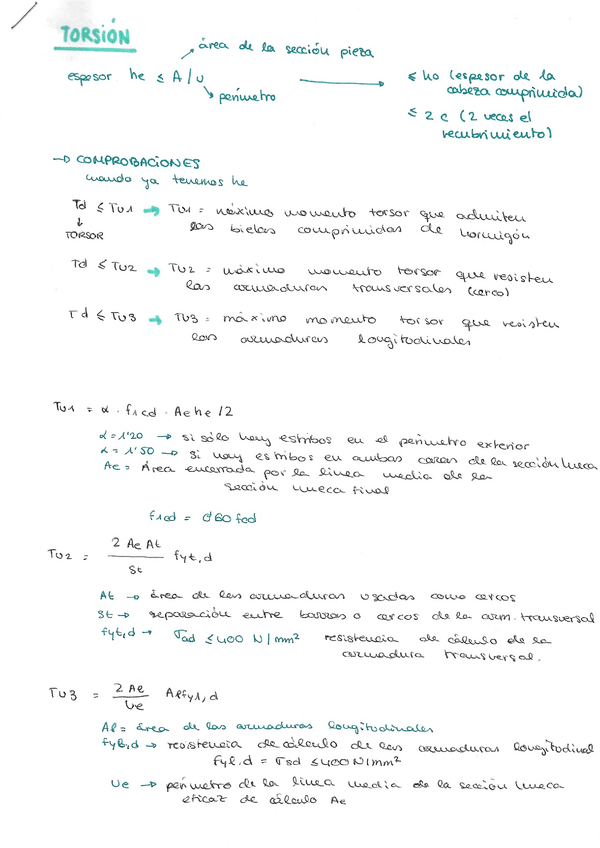 TORSIÓN
área de la sección pieza
espesor he ≤ A/u
perímetro
≤ ho (espesor de la
cabeza comprimida)
≤ 2c (2 veces el
recubrimiento)
→ COMPROBACIONES
cuando ya tenemos he
Td ≤ Tu1 → Tu1 = máximo momento torsor que admiten
↓
TORSOR
las bielas comprimidas de hormigón
Td ≤ Tu2 → Tu2 = máximo momento torsor que resisten
las armaduras transversales (cerco)
Td ≤ Tu3 → Tu3 = máximo momento torsor que resisten
las armaduras longitudinales
Tu1 = α · f1cd · Ae he /2
α = 1'20 → si sólo hay estribos en el perímetro exterior
α = 1'50 → si hay estribos en ambas caras de la sección hueca
Ae = Área encerrada por la línea media de la
sección hueca final
f1cd = 0'60 fcd
Tu2 = 2 Ae At / St fyt,d
At → área de las armaduras usadas como cercos
St → separación entre barras o cercos de la arm. transversal
fyt,d → σsd ≤ 400 N/mm² resistencia de cálculo de la
armadura transversal.
Tu3 = 2 Ae / Ue Alfyl,d
Al = área de las armaduras longitudinales
fyl,d → resistencia de cálculo de las armaduras longitudinal
fyl,d = σsd ≤ 400 N/mm²
Ue → perímetro de la línea media de la sección hueca
eficaz de cálculo Ae